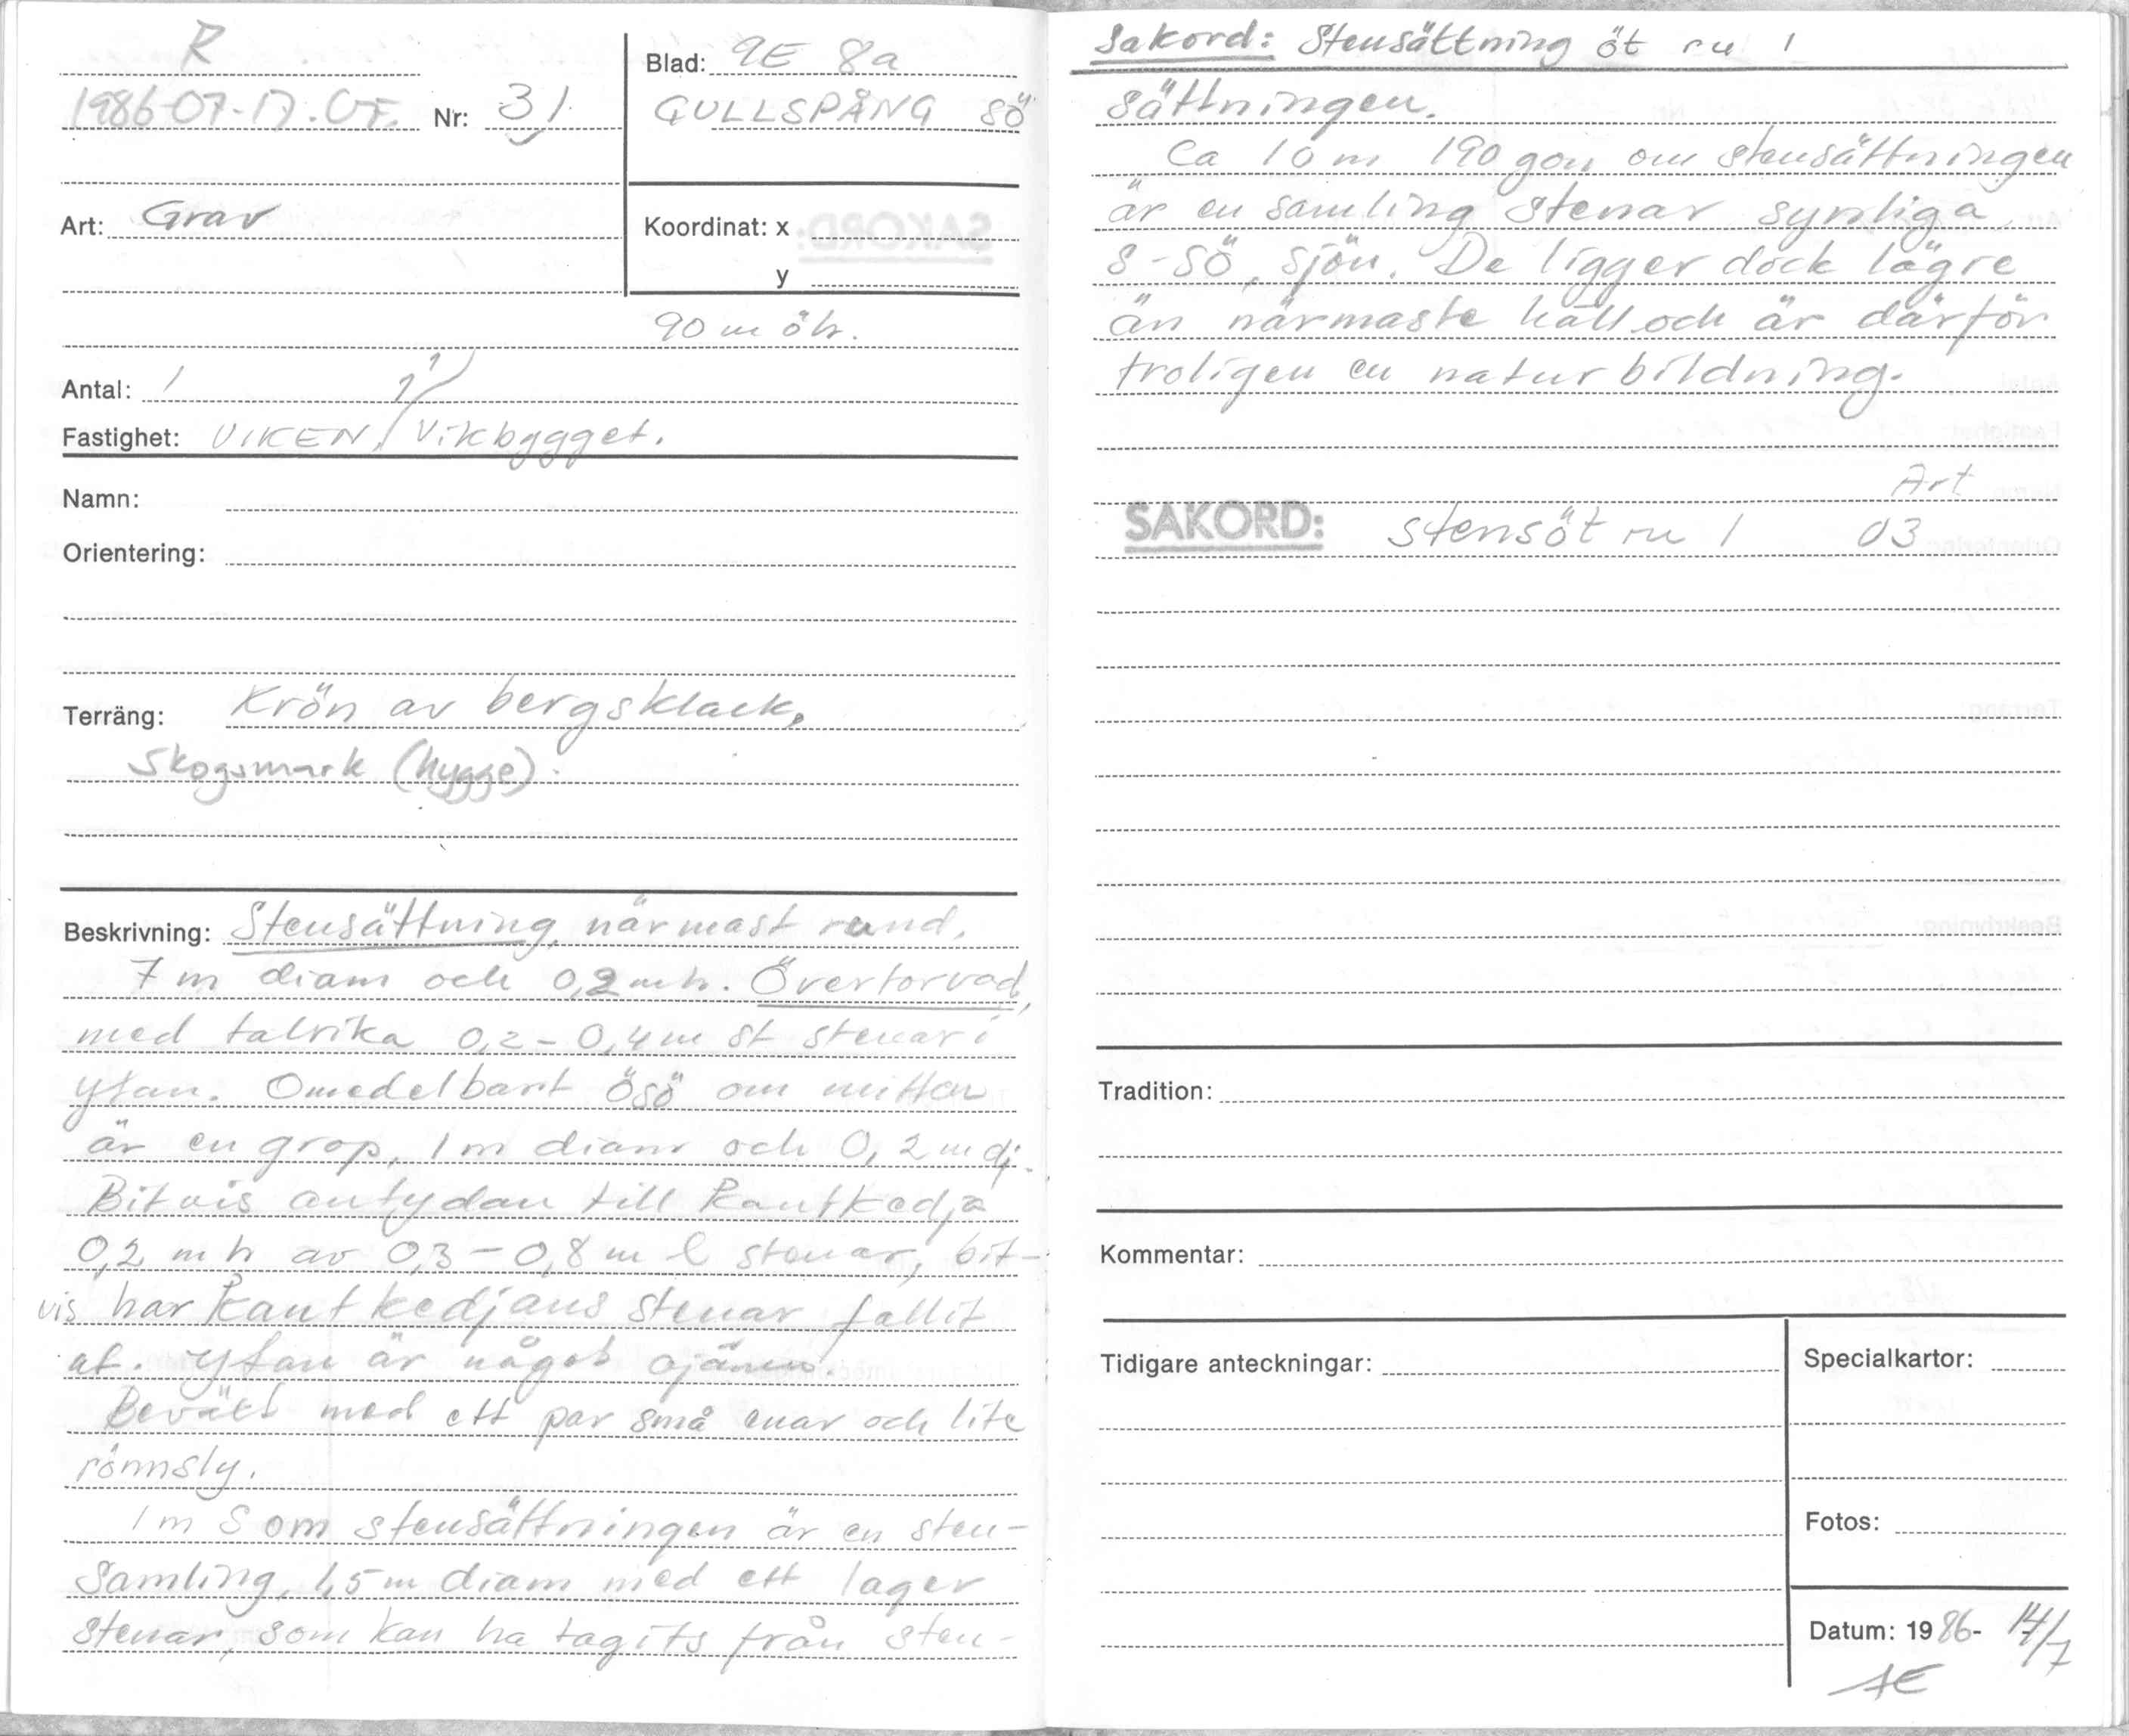 R
1986-07-17. CF. Nr: 31
Blad: 9E 8a
GULLSPÅNG SÖ
Art: Grav
Koordinat: x
y
90 m öh.
Antal: 1
Fastighet: VIKEN, 1/1 Vikbygget.
Namn:
Orientering:
Terräng: Krön av bergsklack,
Skogsmark (hygge).
Beskrivning: Stensättning, närmast rund,
7 m diam och 0,2 m h. Övertorvad,
med talrika 0,2-0,4 m st stenar i
ytan. Omedelbart ÖSÖ om mitten
är en grop, 1 m diam och 0,2 m dj.
Bitvis antydan till kantkedja
0,2 m h av 0,3-0,8 m l stenar, bit-
vis har kantkedjans stenar fallit
at. Ytan är något ojämn.
Beväxt med ett par små enar och lite
rönnsly.
1 m S om stensättningen är en sten-
samling, 1,5 m diam med ett lager
stenar, som kan ha tagits från sten-
Sakord: Stensättning öt ru 1
sättningen.
Ca 10 m 190 gon om stensättningen
är en samling stenar synliga
S-SÖ, sjön. De ligger dock lägre
än närmaste häll och är därför
troligen en naturbildning.
Art
SAKORD: stensöt ru 1 03
Tradition:
Kommentar:
Tidigare anteckningar:
Specialkartor:
Fotos:
Datum: 1986- 14/7
AE